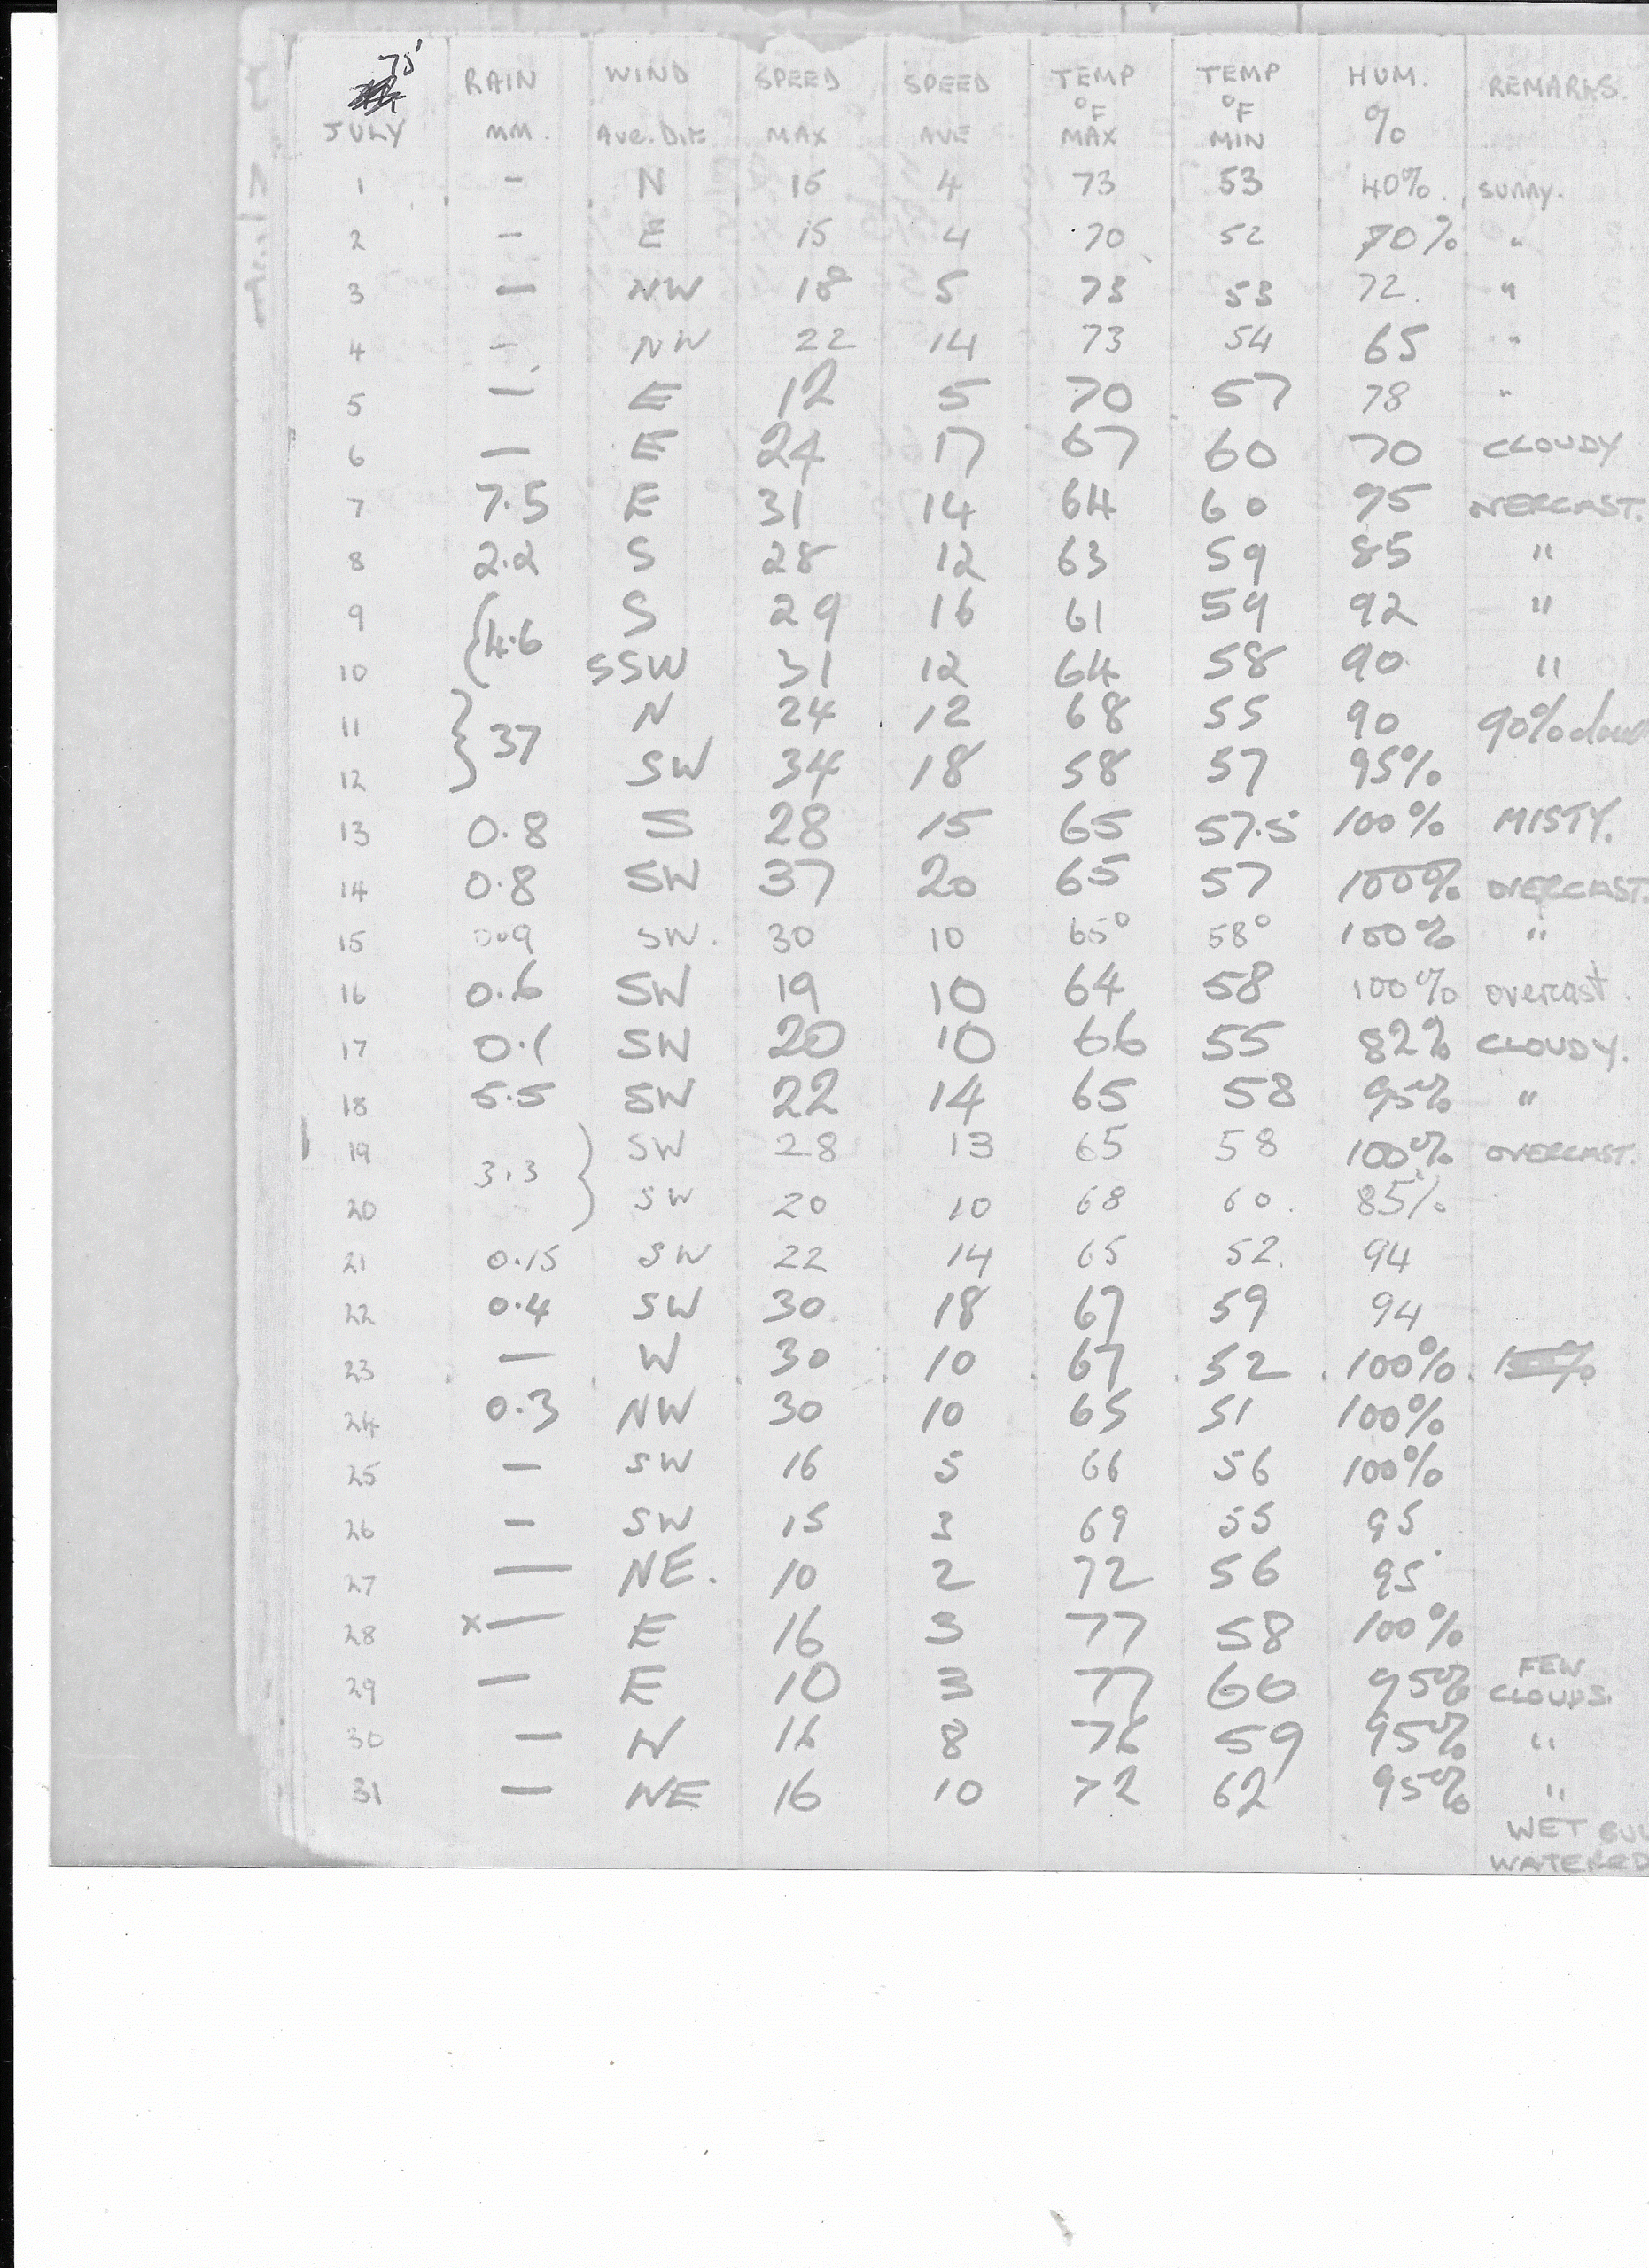 75'
JULY RAIN MM. WIND Ave. Dir. SPEED MAX SPEED AVE TEMP °F MAX TEMP °F MIN HUM. % REMARKS.
1 - N 15 4 73 53 40%. sunny.
2 - E 15 4 70 52 70% "
3 - NW 18 5 73 53 72. "
4 - NW 22 14 73 54 65 "
5 - E 12 5 70 57 78 "
6 - E 24 17 67 60 70 CLOUDY
7 7.5 E 31 14 64 60 95 OVERCAST.
8 2.2 S 28 12 63 59 85 "
9 S 29 16 61 59 92 "
(4.6
10 SSW 31 12 64 58 90 "
11 N 24 12 68 55 90 90%
} 37
12 SW 34 18 58 57 95%
13 0.8 S 28 15 65 57.5 100% MISTY.
14 0.8 SW 37 20 65 57 100% OVERCAST.
15 SW. 30 10 65° 58° 100% "
16 0.6 SW 19 10 64 58 100% overcast.
17 0.1 SW 20 10 66 55 82% CLOUDY.
18 5.5 SW 22 14 65 58 95% "
19 SW 28 13 65 58 100% OVERCAST.
3.3 }
20 SW 20 10 68 60. 85%
21 0.15 SW 22 14 65 52. 94
22 0.4 SW 30 18 67 59 94
23 - W 30 10 67 52 100%.
24 0.3 NW 30 10 65 51 100%
25 - SW 16 5 66 56 100%
26 - SW 15 3 69 55 95
27 - NE. 10 2 72 56 95
28 x - E 16 3 77 58 100%
29 - E 10 3 77 60 95% FEW CLOUDS.
30 - N 16 8 76 59 95% "
31 - NE 16 10 72 62 95% "
WET
WATERED